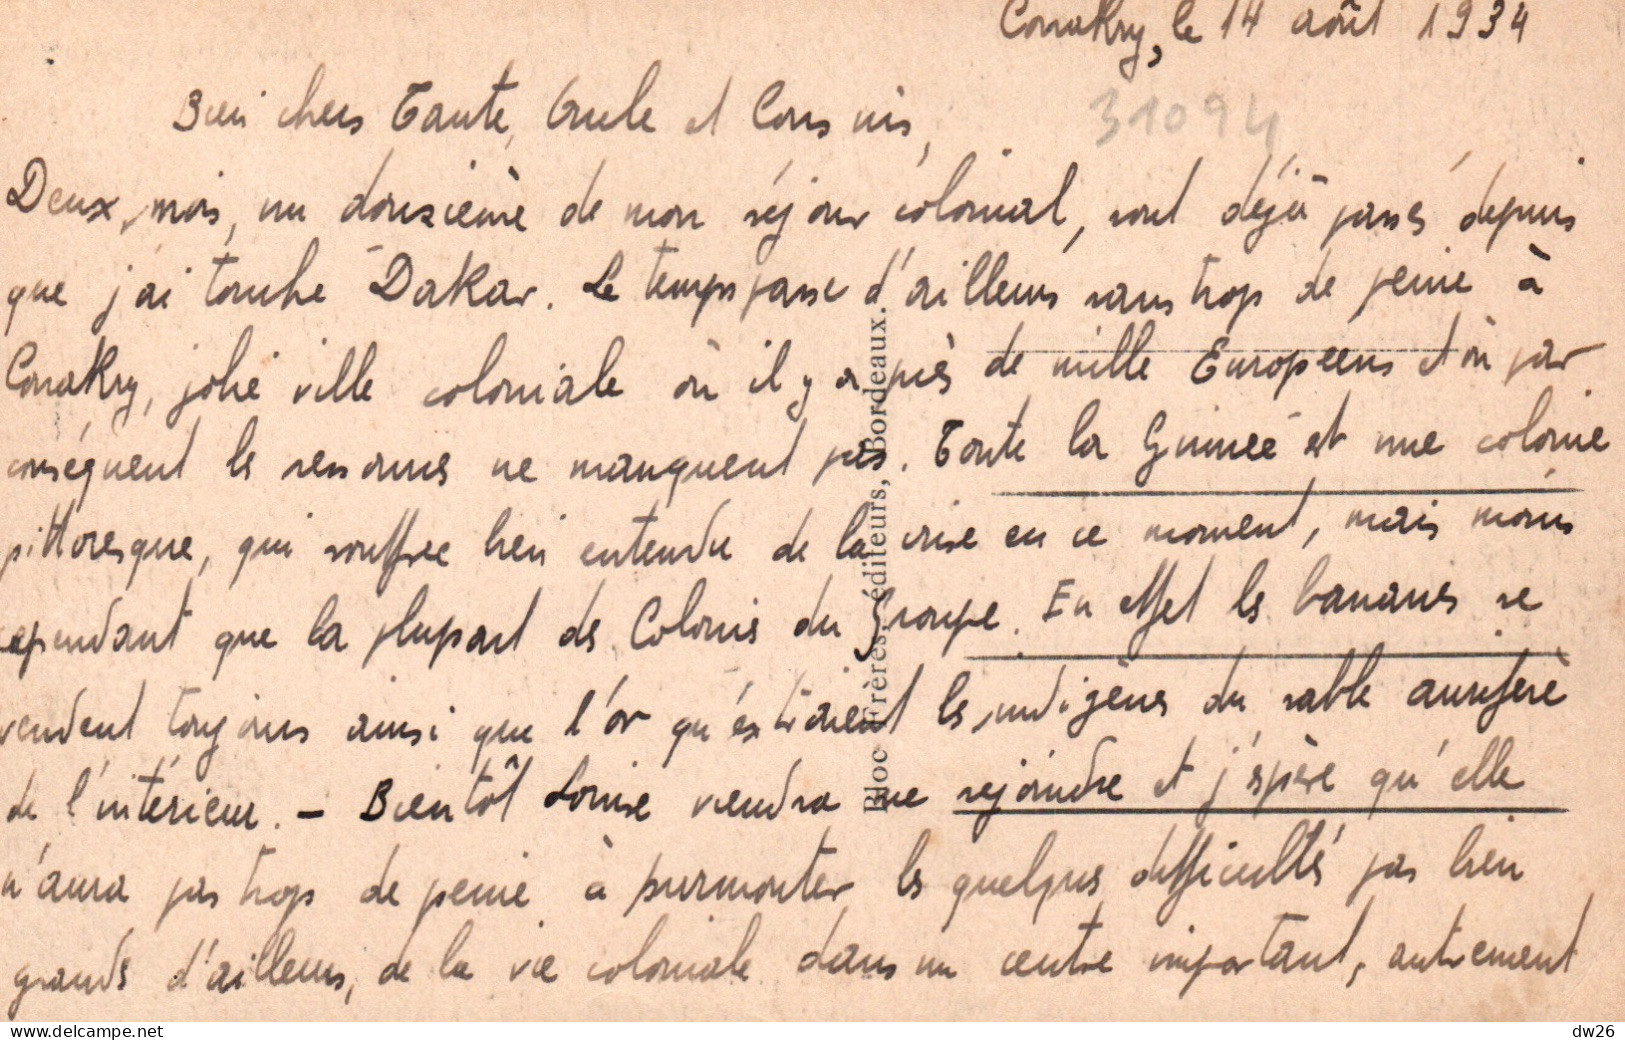 Conakry, le 14 août 1934
31094
Bien chers Tante, Oncle et Cousins,
Deux mois, un douzième de mon séjour colonial, sont déjà passés depuis
que j'ai touché Dakar. Le temps passe d'ailleurs sans trop de peine à
Conakry, jolie ville coloniale où il y a près de mille Européens et où par
conséquent les ressources ne manquent pas. Toute la Guinée est une colonie
pittoresque, qui souffre bien entendu de la crise en ce moment, mais moins
cependant que la plupart des Colonies du Groupe. En effet les bananes se
vendent toujours ainsi que l'or qu'extraient les indigènes du sable aurifère
de l'intérieur. - Bientôt Louise viendra me rejoindre et j'espère qu'elle
n'aura pas trop de peine à surmonter les quelques difficultés pas bien
grandes d'ailleurs, de la vie coloniale dans un centre important, autrement
Bloc Frères, éditeurs, Bordeaux.
www.delcampe.net
dw26